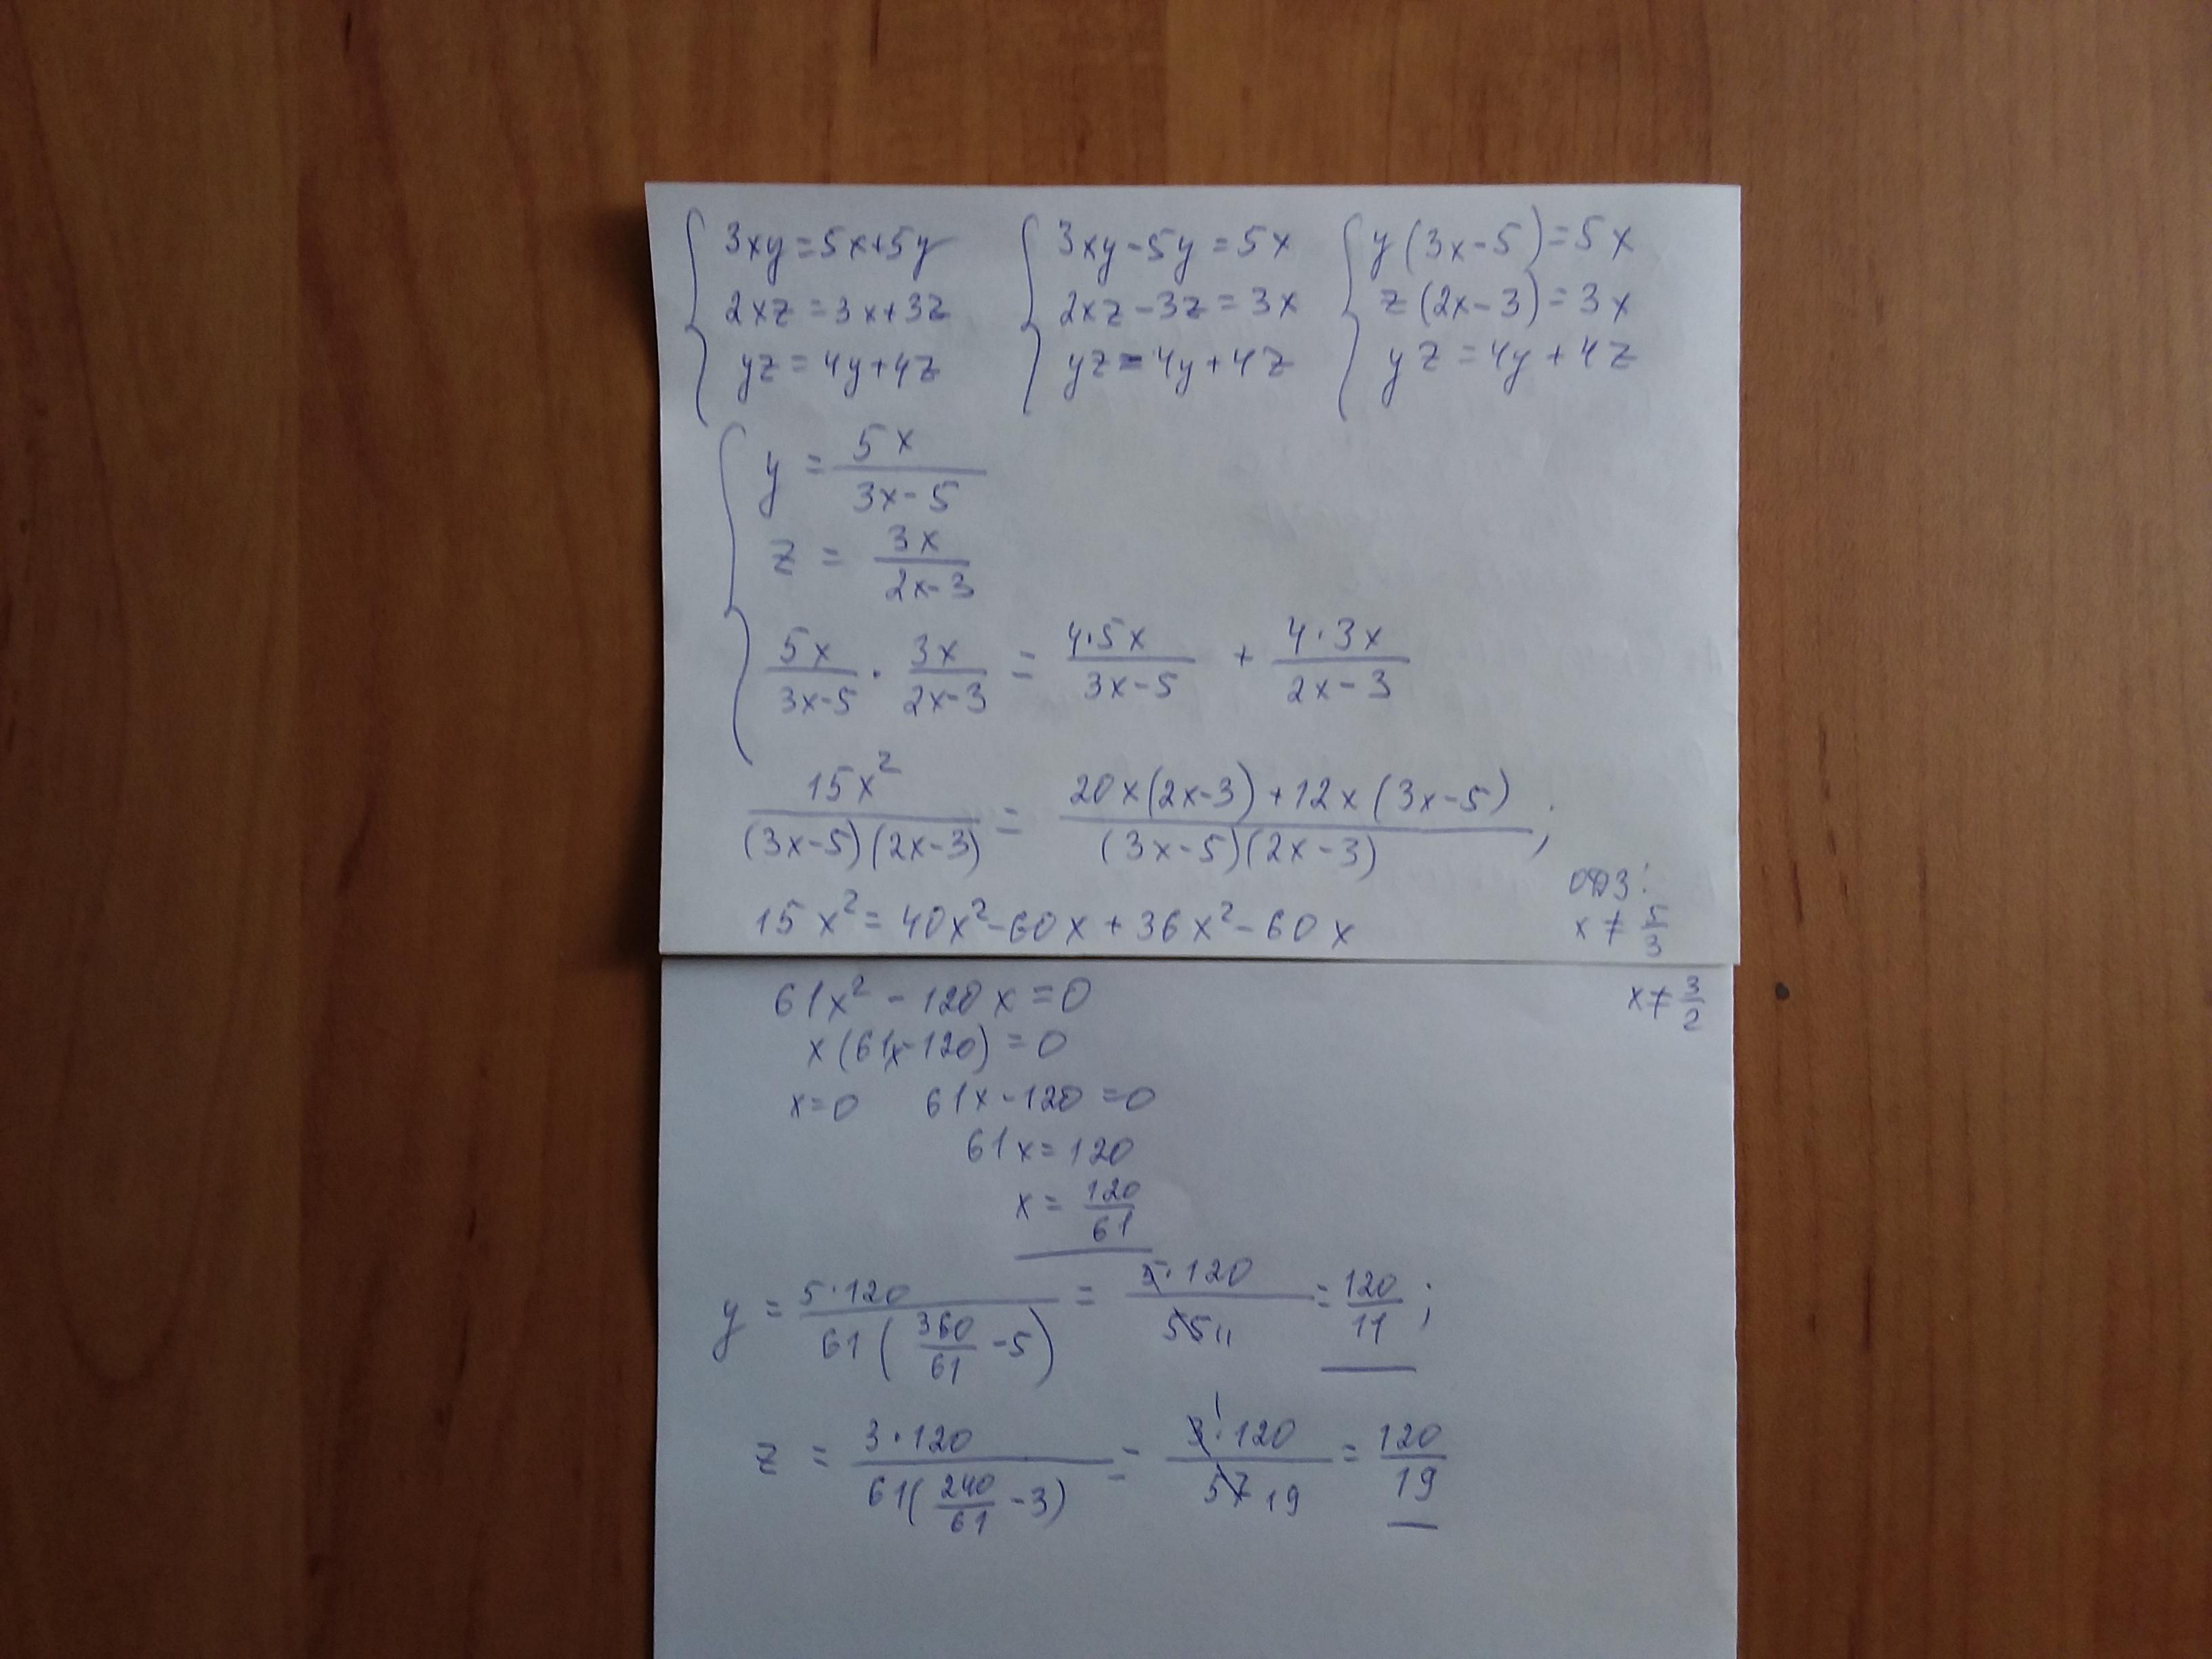 3xy=5x+5y   3xy-5y=5x   y(3x-5)=5x
2xz=3x+3z   2xz-3z=3x   z(2x-3)=3x
yz=4y+4z   yz=4y+4z   yz=4y+4z
y = 5x/(3x-5)
z = 3x/(2x-3)
5x/(3x-5) · 3x/(2x-3) = 4·5x/(3x-5) + 4·3x/(2x-3)
15x²/((3x-5)(2x-3)) = (20x(2x-3)+12x(3x-5))/((3x-5)(2x-3));
ОДЗ:
15x²=40x²-60x+36x²-60x   x≠5/3
61x²-120x=0   x≠3/2
x(61x-120)=0
x=0   61x-120=0
61x=120
x=120/61
y = 5·120/(61(360/61-5)) = 5·120/55 11 = 120/11;
z = 3·120/(61(240/61-3)) = 3 1·120/57 19 = 120/19